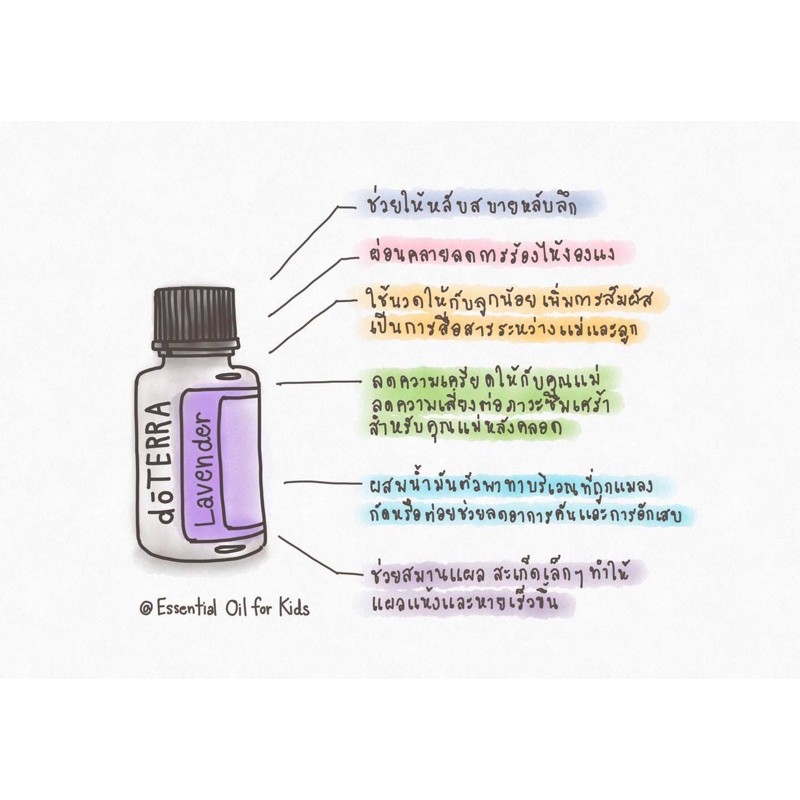 ช่วยให้หลับสบายหลับลึก
ผ่อนคลายลดการร้องไห้งอแง
ใช้นวดให้กับลูกน้อย เพิ่มการสัมผัส
เป็นการสื่อสารระหว่างแม่และลูก
ลดความเครียดให้กับคุณแม่
ลดความเสี่ยงต่อภาวะซึมเศร้า
สำหรับคุณแม่หลังคลอด
ผสมน้ำมันตัวพาทาบริเวณที่ถูกแมลง
กัดหรือต่อยช่วยลดอาการคันและการอักเสบ
ช่วยสมานแผล สะเก็ดเล็กๆ ทำให้
แผลแห้งและหายเร็วขึ้น
dōTERRA
Lavender
@ Essential Oil for Kids